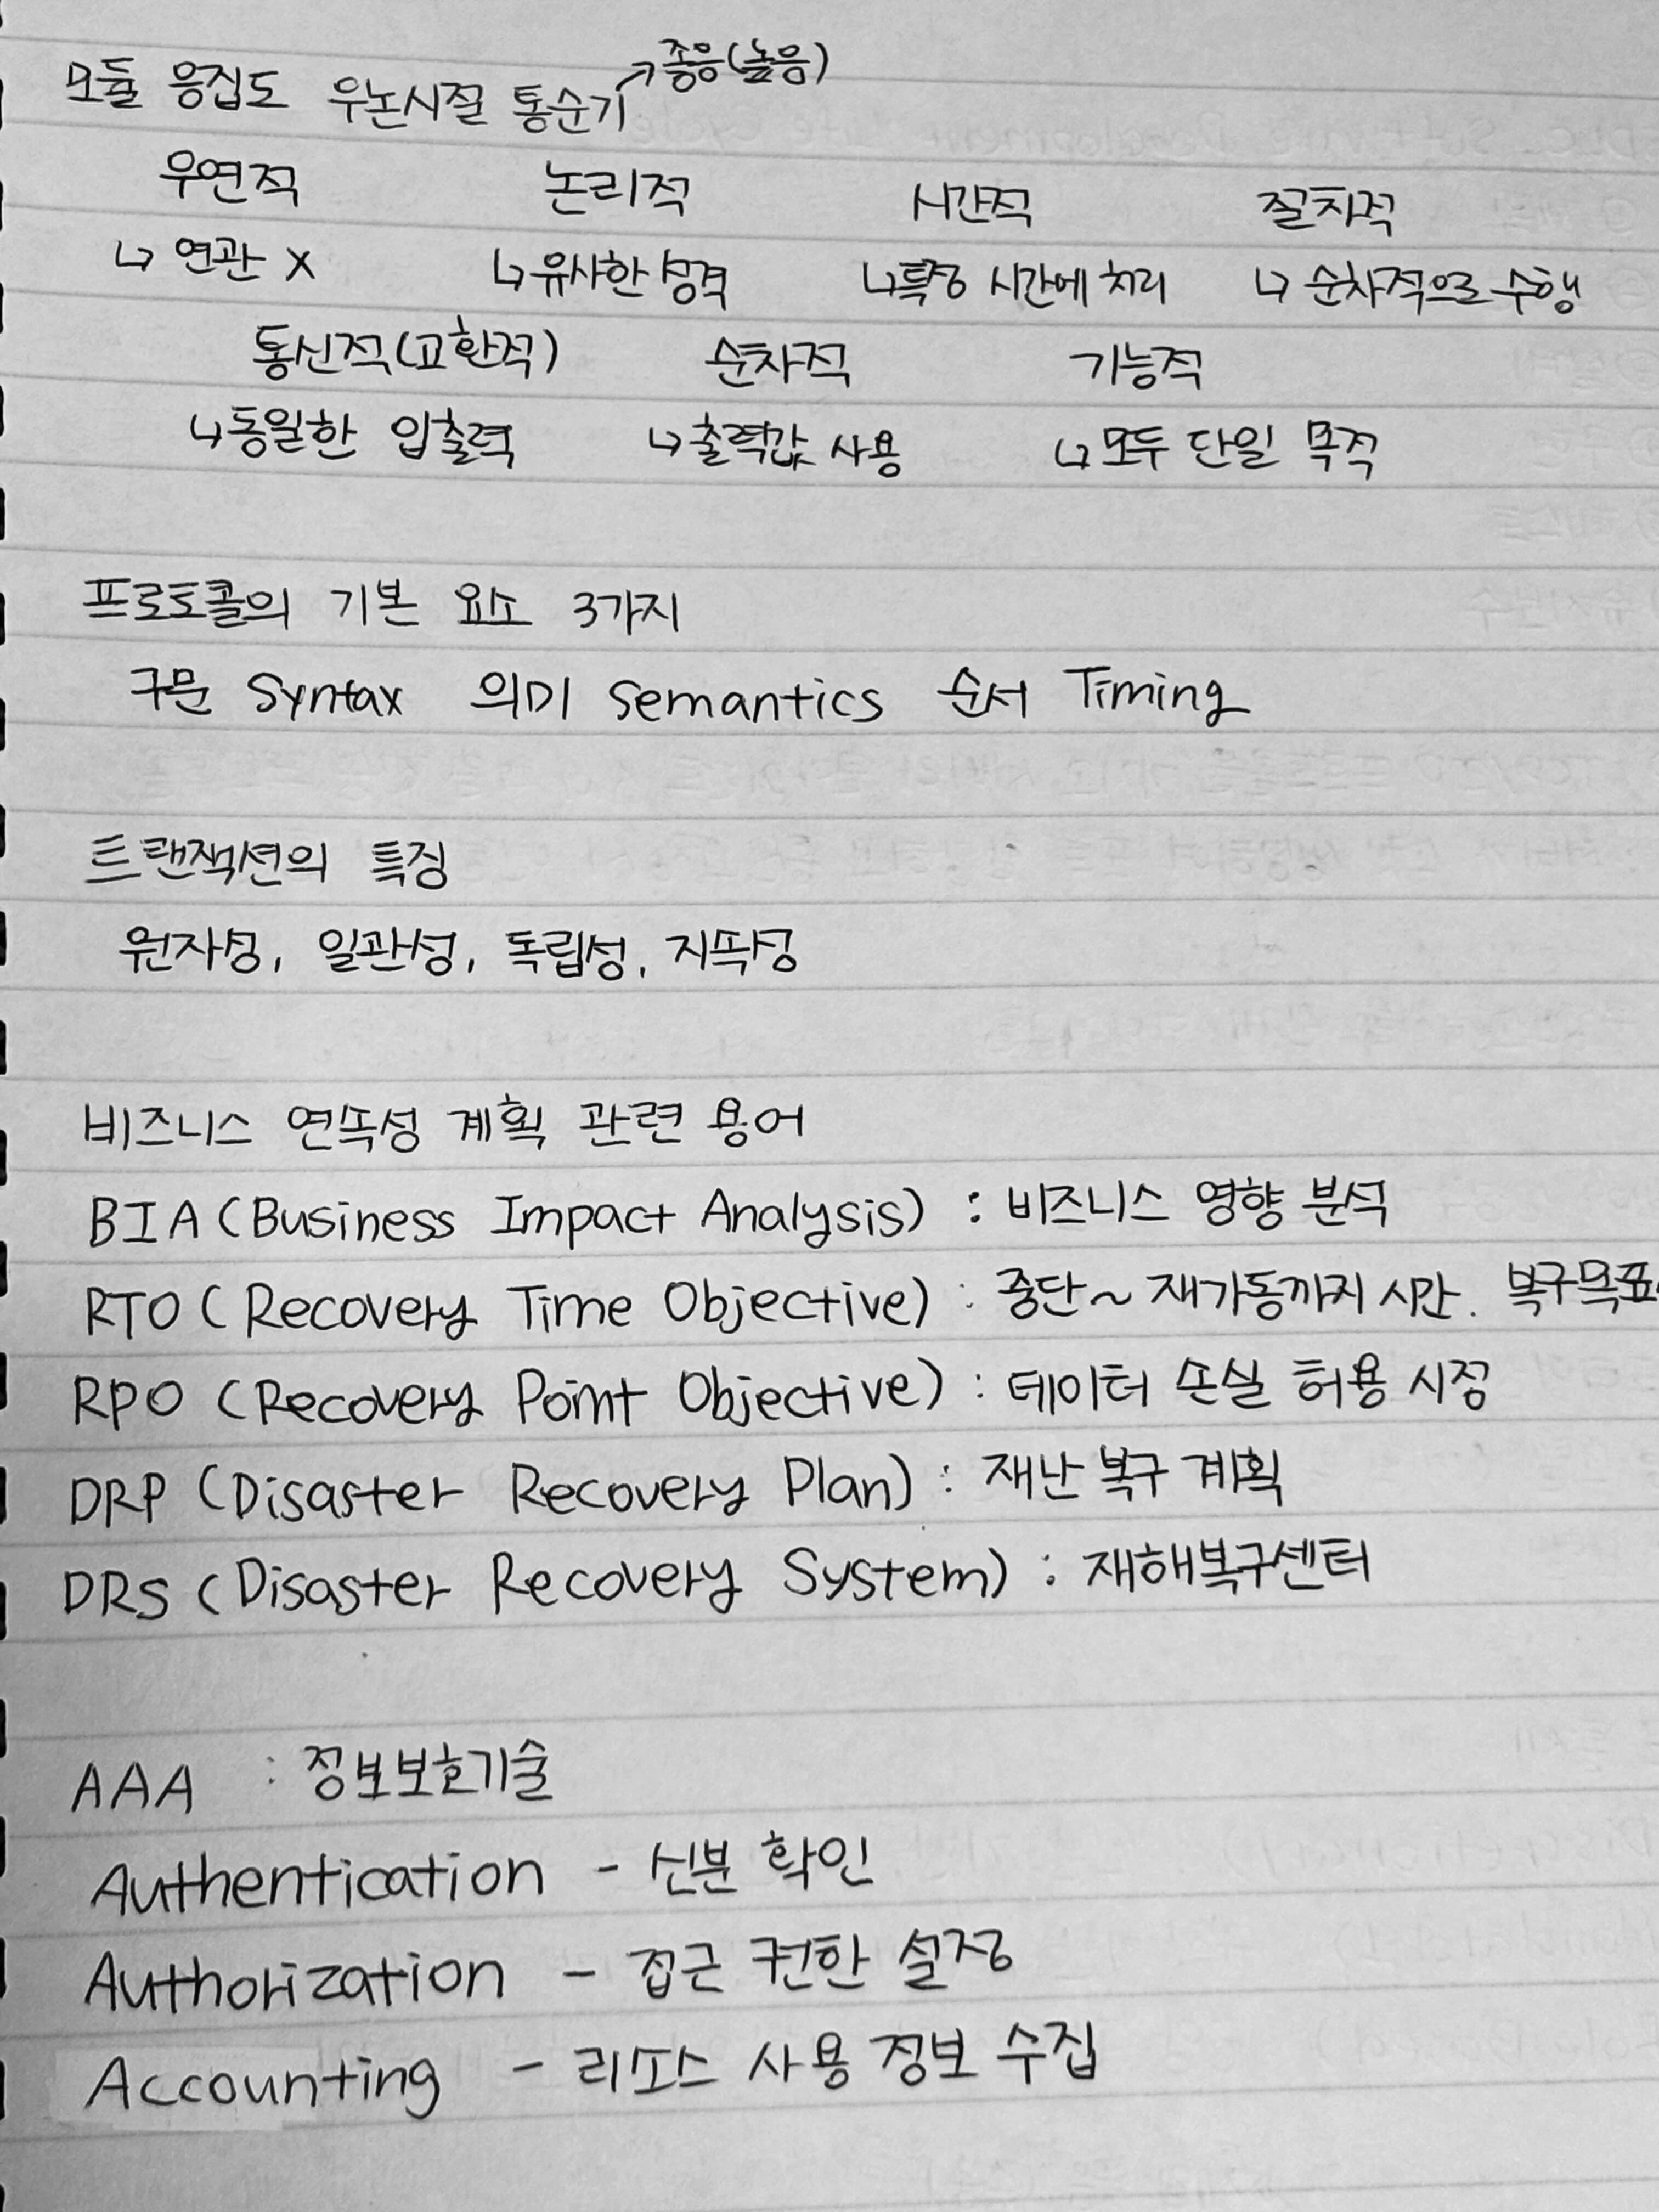 모듈 응집도 우논시절 통순기 ↗좋음(높음)
우연적 논리적 시간적 절차적
↳ 연관 X ↳유사한 성격 ↳특정 시간에 처리 ↳ 순차적으로 수행
통신적(교환적) 순차적 기능적
↳동일한 입출력 ↳출력값 사용 ↳모두 단일 목적
프로토콜의 기본 요소 3가지
구문 Syntax 의미 Semantics 순서 Timing
트랜잭션의 특징
원자성, 일관성, 독립성, 지속성
비즈니스 연속성 계획 관련 용어
BIA (Business Impact Analysis) : 비즈니스 영향 분석
RTO (Recovery Time Objective) : 중단~ 재가동까지 시간. 복구목표
RPO (Recovery Point Objective) : 데이터 손실 허용 시점
DRP (Disaster Recovery Plan) : 재난 복구 계획
DRS (Disaster Recovery System) : 재해복구센터
AAA : 정보보호기술
Authentication - 신분 확인
Authorization - 접근 권한 설정
Accounting - 리소스 사용 정보 수집